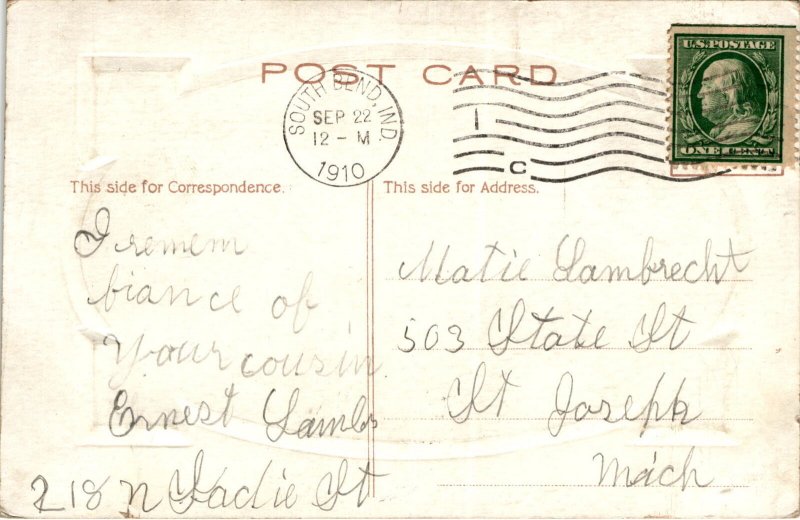 POST CARD
SOUTH BEND, IND.
SEP 22
12 - M
1910
1
C
U.S. POSTAGE
ONE CENT
This side for Correspondence.
This side for Address.
I remem
biance of
your cousin
Ernest Lamb
218 N Sadie St
Matie Lambrecht
503 State St
St Joseph
Mich